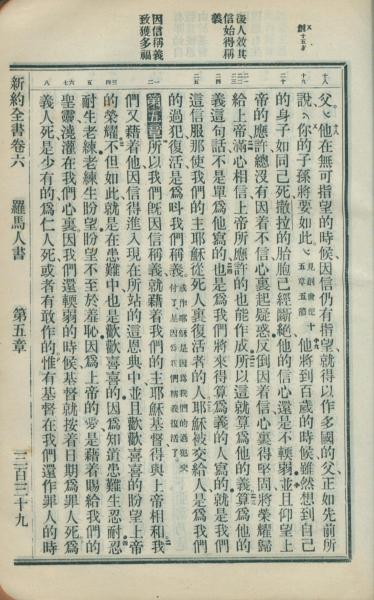 又創十五章
後人效其信始得稱義
因信稱義致獲多福
父、他在無可指望的時候因信仍有指望就得以作多國的父正如先前所
說、你的子孫將要如此、見創世記十五章五節他將到百歲的時候雖然想到自己
的身子如同已死撒拉的胎胞已經斷絕他的信心還是不輭弱並且仰望上
帝的應許總沒有因着不信心裏起疑惑反倒因着信心裏得堅固將榮耀歸
給上帝滿心相信上帝所應許的也能作成所以這就算爲他的義算爲他的
義這句話不是單爲他寫的也是爲我們將來得算爲義的人寫的就是我們
這信服那使我們的主耶穌從死人裏復活者的人耶穌被交給人是爲我們
的過犯復活是爲呌我們稱義或作耶穌是因爲我們的過犯交付了是因爲我們稱義復活了
第五章所以我們旣因信稱義就藉着我們的主耶穌基督得與上帝相和我
們又藉着他因信得進入現在所站的這恩典中並且歡歡喜喜的盼望上帝
的榮耀不但如此就是在患難中也是歡歡喜喜的因爲知道患難生忍耐忍
耐生老練老練生盼望盼望不至於羞恥因爲上帝的愛是藉着賜給我們的
聖靈澆灌在我們心裏因我們還輭弱的時候基督就按着日期爲罪人死爲
義人死是少有的爲仁人死或者有敢作的惟有基督在我們還作罪人的時
新約全書卷六 羅馬人書 第五章 三百三十九